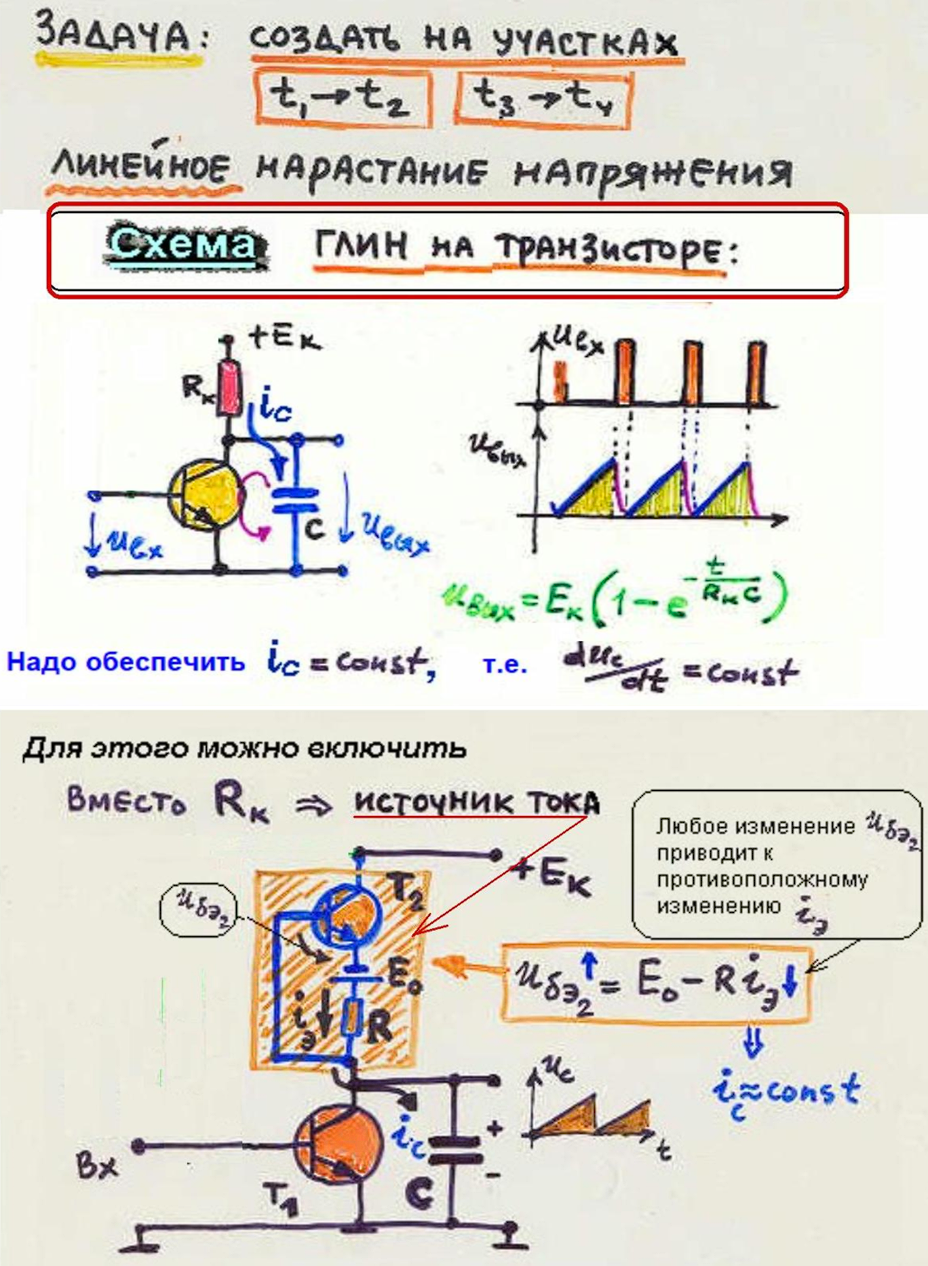 ЗАДАЧА: СОЗДАТЬ НА УЧАСТКАХ
t₁→t₂ t₃→t₄
ЛИНЕЙНОЕ НАРАСТАНИЕ НАПРЯЖЕНИЯ
Схема ГЛИН НА ТРАНЗИСТОРЕ:
+Eк
Rк
iс
C
uвх
uвых
uвх
uвых
uвых = Eк(1 − e^(−t/(RкC)))
Надо обеспечить iс = const, т.е. duс/dt = const
Для этого можно включить
Вместо Rк ⇒ ИСТОЧНИК ТОКА
Любое изменение uбэ₂
приводит к
противоположному
изменению iэ
+Eк
T₂
uбэ₂
E₀
iэ
R
uбэ₂↑ = E₀ − R iэ↓
⇓
iс ≈ const
uс
t
iс
+
-
C
Вх
T₁